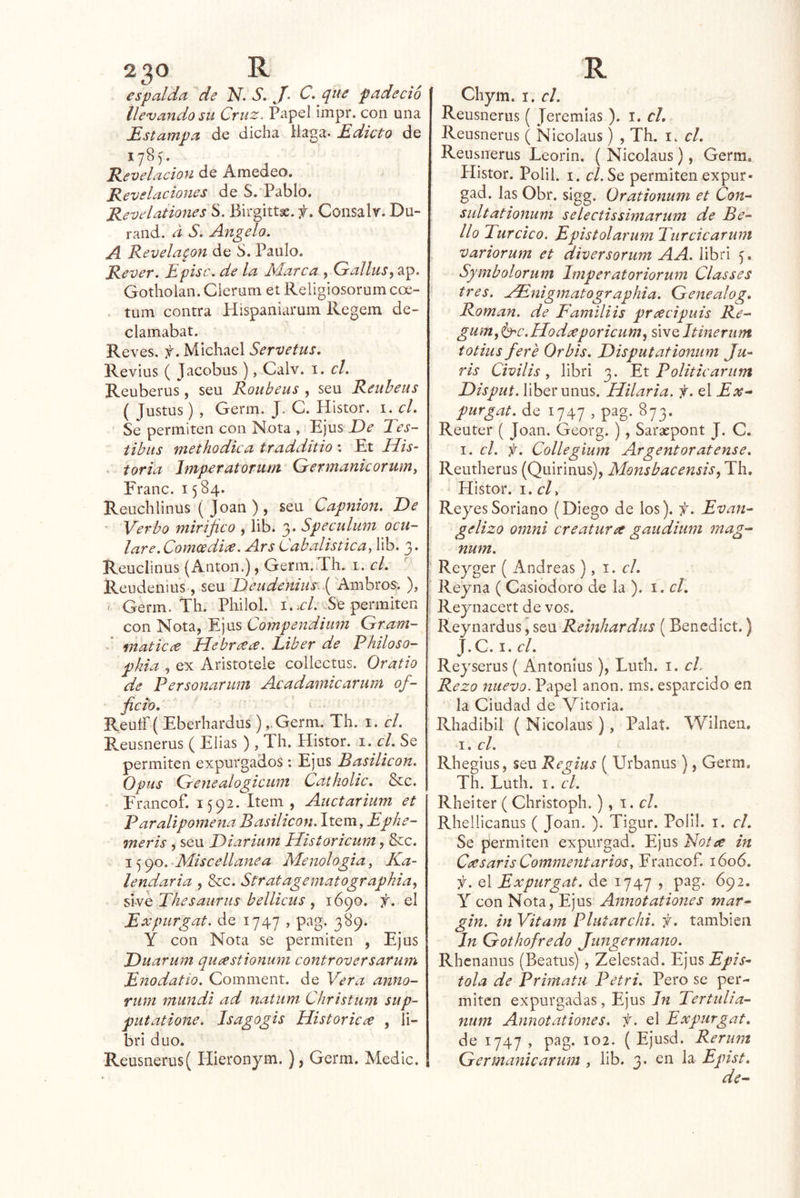 230 R
espalda de N. S. J. C. que padeció
llevando su Cruz. Papel impr. con una
Estampa de dicha llaga. Edicto de
1785.
Revelacion de Amedeo.
Revelaciones de S. Pablo.
Revelationes S. Birgittæ. ꝟ. Consalv. Du-
rand. á S. Angelo.
A Revelaçon de S. Paulo.
Rever. Episc. de la Marca, Gallus, ap.
Gotholan. Clerum et Religiosorum cœ-
tum contra Hispaniarum Regem de-
clamabat.
Reves. ꝟ. Michael Servetus.
Revius ( Jacobus ), Calv. 1. cl.
Reuberus, seu Roubeus, seu Reubeus
( Justus ), Germ. J. C. Histor. 1. cl.
Se permiten con Nota, Ejus De Tes-
tibus methodica tradditio: Et His-
toria Imperatorum Germanicorum,
Franc. 1584.
Reuchlinus ( Joan ), seu Capnion. De
Verbo mirifico, lib. 3. Speculum ocu-
lare. Comœdiæ. Ars Cabalistica, lib. 3.
Reuclinus (Anton.), Germ. Th. 1. cl.
Reudenius, seu Deudenius ( Ambros. ),
Germ. Th. Philol. 1. cl. Se permiten
con Nota, Ejus Compendium Gram-
maticæ Hebrææ. Liber de Philoso-
phia, ex Aristotele collectus. Oratio
de Personarum Acadamicarum of-
ficio.
Reuff ( Eberhardus ), Germ. Th. 1. cl.
Reusnerus ( Elias ), Th. Histor. 1. cl. Se
permiten expurgados: Ejus Basilicon.
Opus Genealogicum Catholic. &c.
Francof. 1592. Item, Auctarium et
Paralipomena Basilicon. Item, Ephe-
meris, seu Diarium Historicum, &c.
1590. Miscellanea Menologia, Ka-
lendaria, &c. Stratagematographia,
sive Thesaurus bellicus, 1690. ꝟ. el
Expurgat. de 1747, pag. 389.
Y con Nota se permiten, Ejus
Duarum quæstionum controversarum
Enodatio. Comment. de Vera anno-
rum mundi ad natum Christum sup-
putatione. Isagogis Historicæ, li-
bri duo.
Reusnerus( Hieronym. ), Germ. Medic.
R
Chym. 1. cl.
Reusnerus ( Jeremias ). 1. cl.
Reusnerus ( Nicolaus ), Th. 1. cl.
Reusnerus Leorin. ( Nicolaus ), Germ.
Histor. Polil. 1. cl. Se permiten expur-
gad. las Obr. sigg. Orationum et Con-
sultationum selectissimarum de Be-
llo Turcico. Epistolarum Turcicarum
variorum et diversorum AA. libri 5.
Symbolorum Imperatoriorum Classes
tres. Ænigmatographia. Genealog.
Roman. de Familiis præcipuis Re-
gum, &c. Hodæporicum, sive Itinerum
totius fere Orbis. Disputationum Ju-
ris Civilis, libri 3. Et Politicarum
Disput. liber unus. Hilaria. ꝟ. el Ex-
purgat. de 1747, pag. 873.
Reuter ( Joan. Georg. ), Saræpont J. C.
1. cl. ꝟ. Collegium Argentoratense.
Reutherus (Quirinus), Monsbacensis, Th.
Histor. 1. cl,
Reyes Soriano (Diego de los). ꝟ. Evan-
gelizo omni creaturæ gaudium mag-
num.
Reyger ( Andreas ), 1. cl.
Reyna ( Casiodoro de la ). 1. cl.
Reynacert de vos.
Reynardus, seu Reinhardus ( Benedict. )
J. C. 1. cl.
Reyserus ( Antonius ), Luth. 1. cl.
Rezo nuevo. Papel anon. ms. esparcido en
la Ciudad de Vitoria.
Rhadibil ( Nicolaus ), Palat. Wilnen.
1. cl.
Rhegius, seu Regius ( Urbanus ), Germ.
Th. Luth. 1. cl.
Rheiter ( Christoph. ), 1. cl.
Rhellicanus ( Joan. ). Tigur. Polil. 1. cl.
Se permiten expurgad. Ejus Notæ in
Cæsaris Commentarios, Francof. 1606.
ꝟ. el Expurgat. de 1747, pag. 692.
Y con Nota, Ejus Annotationes mar-
gin. in Vitam Plutarchi. ꝟ. tambien
In Gothofredo Jungermano.
Rhenanus (Beatus), Zelestad. Ejus Epis-
tola de Primatu Petri. Pero se per-
miten expurgadas, Ejus In Tertulia-
num Annotationes. ꝟ. el Expurgat.
de 1747, pag. 102. ( Ejusd. Rerum
Germanicarum, lib. 3. en la Epist.
de-